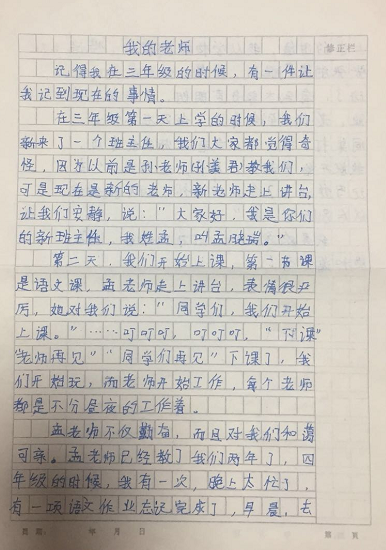 我的老师
修正栏
记得我在三年级的时候，有一件让
我记到现在的事情。
在三年级第一天上学的时候，我们
新来了一个班主任，我们大家都觉得奇
怪，因为以前是孙老师教我们，
可是现在是新的老师，新老师走上讲台，
让我们安静，说：“大家好，我是你们
的新班主任，我姓孟，叫孟晓瑞。”
第二天，我们开始上课，第一节课
是语文课，孟老师走上讲台，表情很严
厉，她对我们说：“同学们，我们开始
上课。”……叮叮叮，叮叮叮，“下课”
“老师再见”“同学们再见”下课了，我
们开始玩，而老师开始工作，每个老师
都是不分昼夜的工作着。
孟老师不仅勤奋，而且对我们和蔼
可亲。孟老师已经教了我们两年了，四
年级的时候，我有一次，晚上太忙了，
有一项语文作业忘记完成了，早晨，去
日期： 年 月 日 第 页